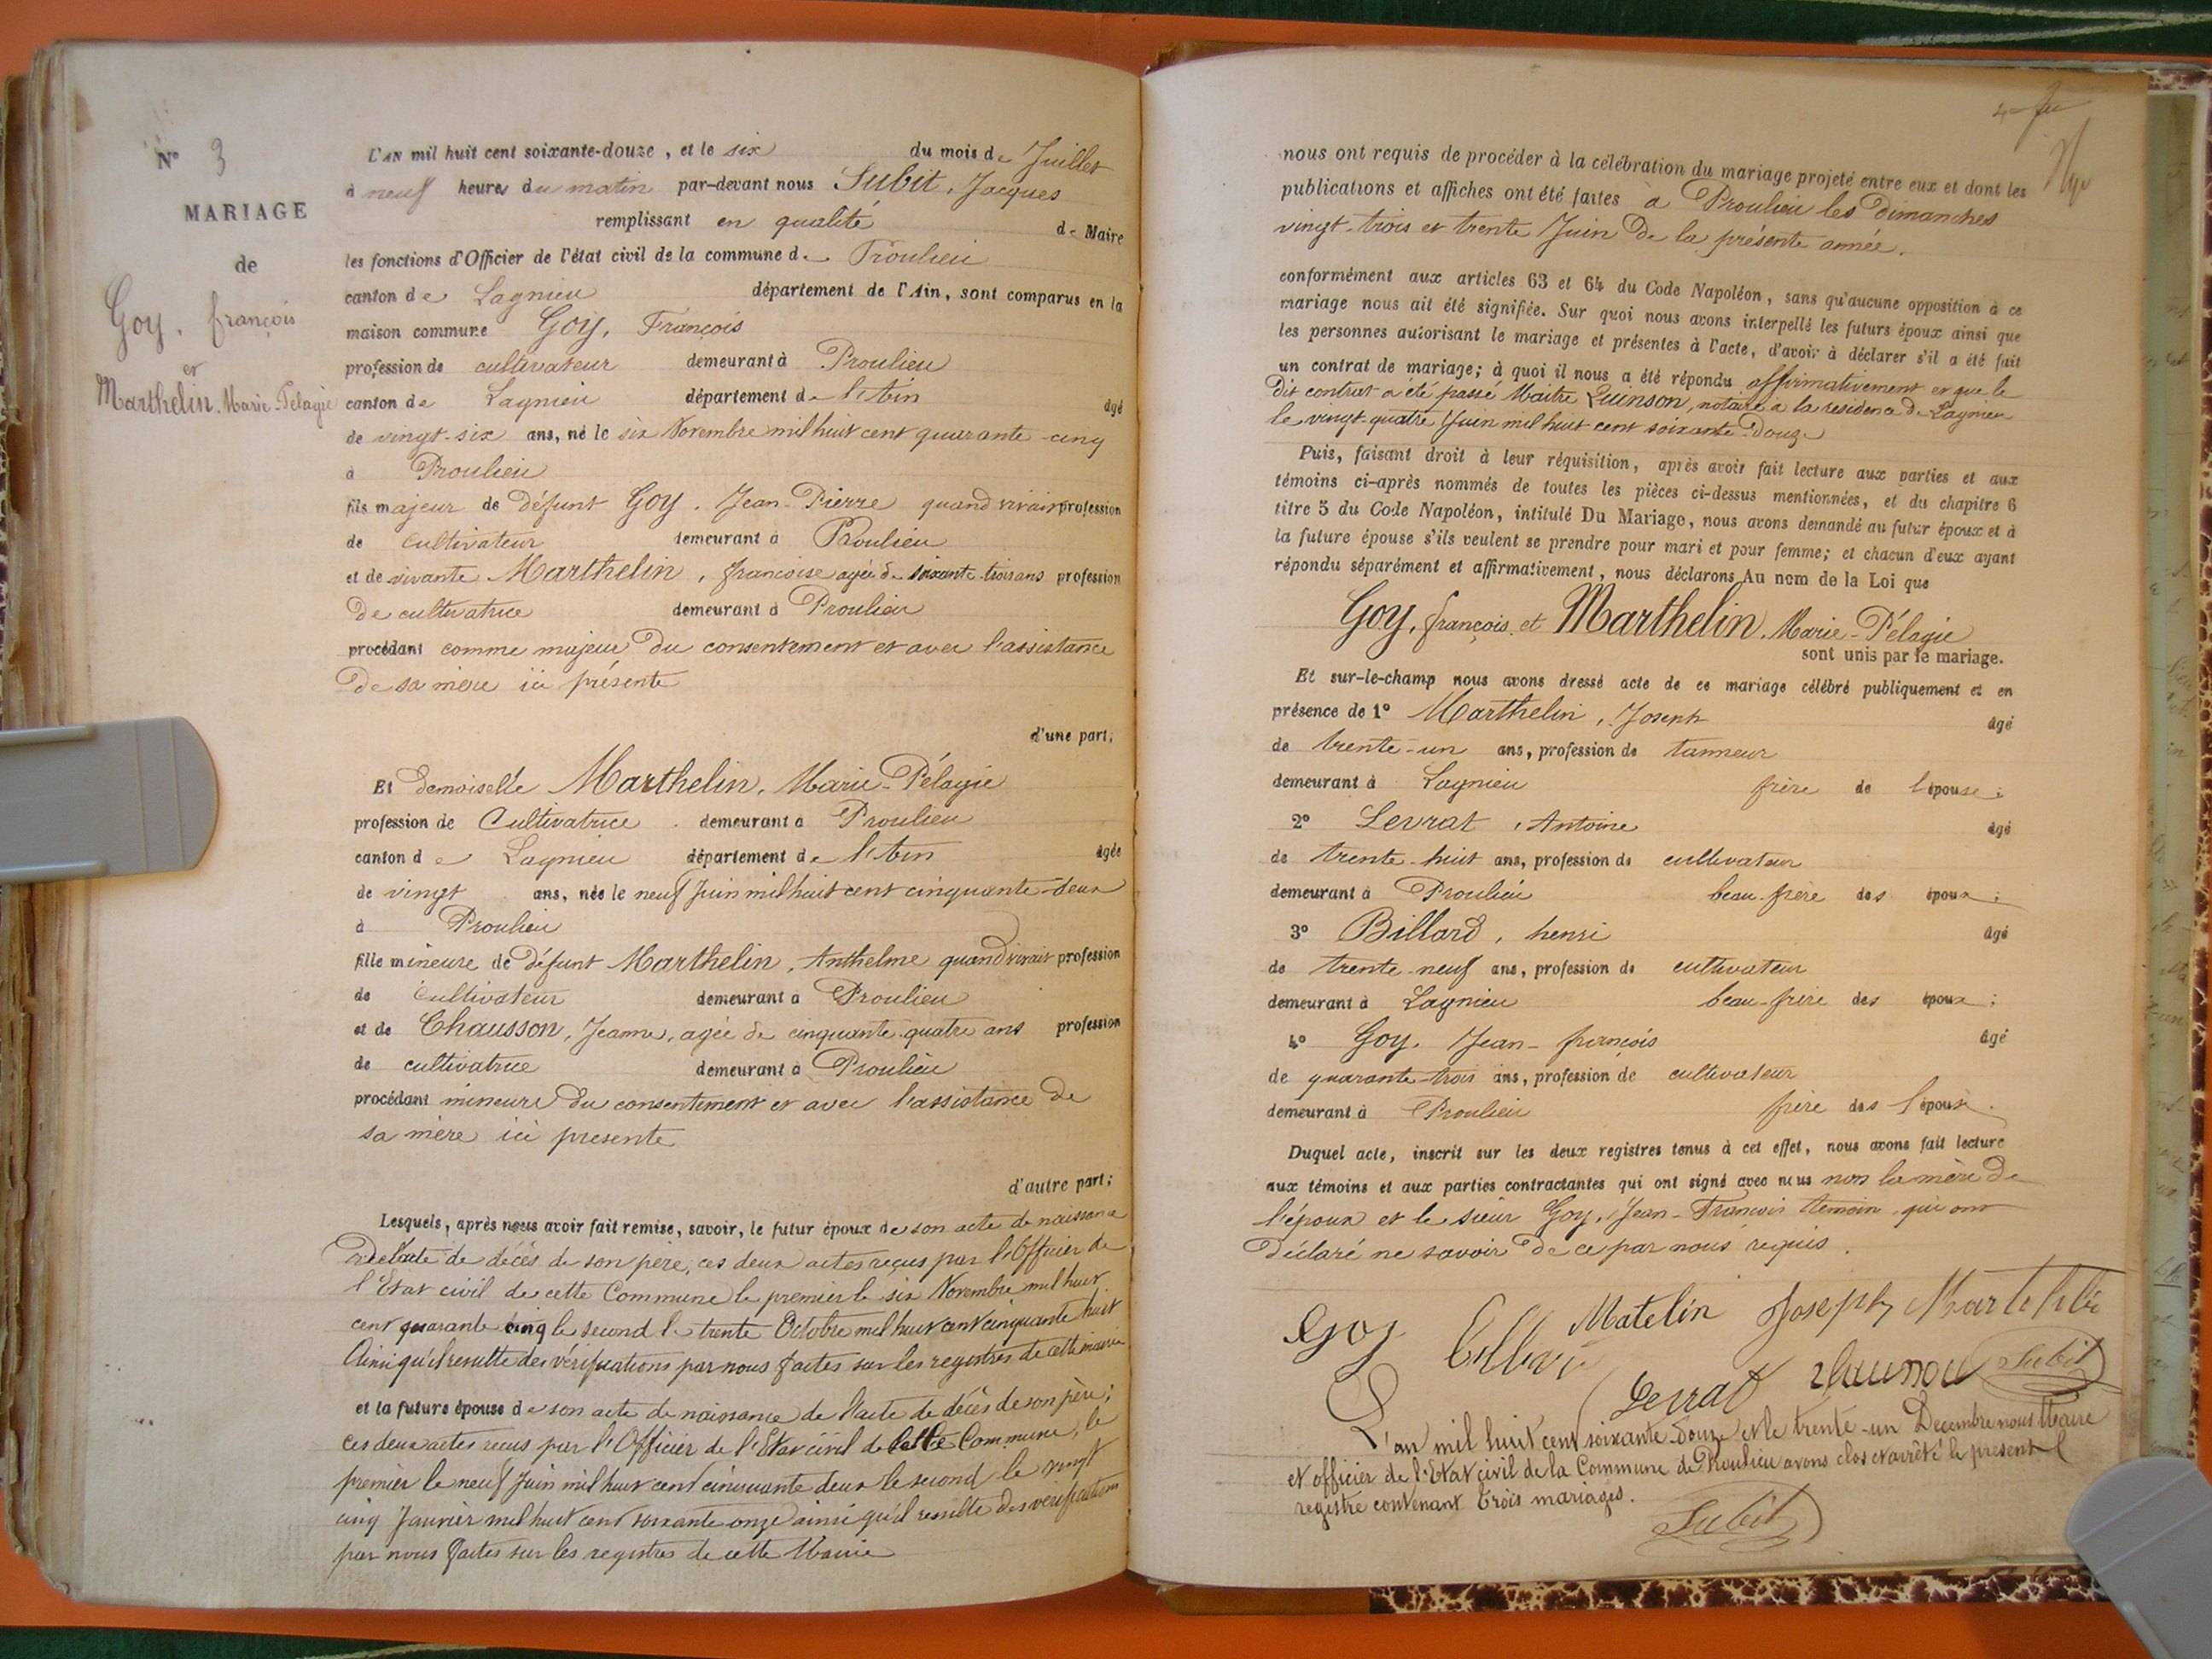 N° 3
MARIAGE
de
Goy, françois
et
Marthelin, Marie-Pélagie
L'AN mil huit cent soixante-douze, et le six du mois de Juillet
à neuf heures du matin par-devant nous Subit, Jacques
remplissant en qualité de Maire
les fonctions d'Officier de l'état civil de la commune de Proulieu
canton de Lagnieu département de l'Ain, sont comparus en la
maison commune Goy, François
profession de cultivateur demeurant à Proulieu
canton de Lagnieu département de l'Ain âgé
de vingt-six ans, né le six Novembre mil huit cent quarante-cinq
à Proulieu
fils majeur de défunt Goy, Jean-Pierre quand vivait profession
de cultivateur demeurant à Proulieu
et de vivante Marthelin, francoise agée de soixante trois ans profession
de cultivatrice demeurant à Proulieu
procédant comme majeur du consentement et avec l'assistance
de sa mère ici présente
d'une part;
Et demoiselle Marthelin, Marie-Pélagie
profession de Cultivatrice demeurant à Proulieu
canton de Lagnieu département de l'Ain âgée
de vingt ans, née le neuf Juin mil huit cent cinquante-deux
à Proulieu
fille mineure de défunt Marthelin, Anthelme quand vivait profession
de cultivateur demeurant à Proulieu
et de Chausson, Jeanne, agée de cinquante-quatre ans profession
de cultivatrice demeurant à Proulieu
procédant mineure du consentiment et avec l'assistance de
sa mère ici presente
d'autre part;
Lesquels, après nous avoir fait remise, savoir, le futur époux de son acte de naissance
et de l'acte de décès de son père, ces deux actes reçus par l'Officier de
l'Etat civil de cette Commune le premier le six Novembre mil huit
cent quarante cinq le second le trente Octobre mil huit cent cinquante huit
Ainsi qu'il resulte des vérifications par nous faites sur les registres de cette mairie
et la future épouse de son acte de naissance de l'acte de décès de son père;
ces deux actes reçus par l'Officier de l'Etat civil de cette Commune, le
premier le neuf Juin mil huit cent cinquante deux le second le vingt
cinq Janvier mil huit cent soixante onze ainsi qu'il resulte des verifications
par nous faites sur les registres de cette Mairie
nous ont requis de procéder à la célébration du mariage projeté entre eux et dont les
publications et affiches ont été faites à Proulieu les Dimanches
vingt-trois et trente Juin de la présente année.
conformément aux articles 63 et 64 du Code Napoléon, sans qu'aucune opposition à ce
mariage nous ait été signifiée. Sur quoi nous avons interpellé les futurs époux ainsi que
les personnes autorisant le mariage et présentes à l'acte, d'avoir à déclarer s'il a été fait
un contrat de mariage; à quoi il nous a été répondu affirmativement et que le
dit contrat a été passé Maitre Quinson, notaire à la residence de Lagnieu
le vingt-quatre Juin mil huit cent soixante-Douze
Puis, faisant droit à leur réquisition, après avoir fait lecture aux parties et aux
témoins ci-après nommés de toutes les pièces ci-dessus mentionnées, et du chapitre 6
titre 5 du Code Napoléon, intitulé Du Mariage, nous avons demandé au futur époux et à
la future épouse s'ils veulent se prendre pour mari et pour femme; et chacun d'eux ayant
répondu séparément et affirmativement, nous déclarons Au nom de la Loi que
Goy, françois et Marthelin, Marie-Pélagie
sont unis par le mariage.
Et sur-le-champ nous avons dressé acte de ce mariage célébré publiquement et en
présence de 1° Marthelin, Joseph âgé
de trente-un ans, profession de tanneur
demeurant à Lagnieu frère de l'épouse;
2° Levrat, Antoine âgé
de trente-huit ans, profession de cultivateur
demeurant à Proulieu beau-frère des époux;
3° Billard, henri âgé
de trente-neuf ans, profession de cultivateur
demeurant à Lagnieu beau-frère des époux;
4° Goy, Jean-françois âgé
de quarante-trois ans, profession de cultivateur
demeurant à Proulieu frère des l'époux.
Duquel acte, inscrit sur les deux registres tenus à cet effet, nous avons fait lecture
aux témoins et aux parties contractantes qui ont signé avec nous non la mère de
l'époux et le sieur Goy, Jean-François témoin qui ont
déclaré ne savoir de ce par nous requis.
Goy Matelin Joseph
Levrat Subit
L'an mil huit cent soixante-douze et le trente-un Decembre nous Maire
et officier de l'Etat civil de la Commune de Proulieu avons clos et arrêté le present
registre contenant trois mariages.
Subit